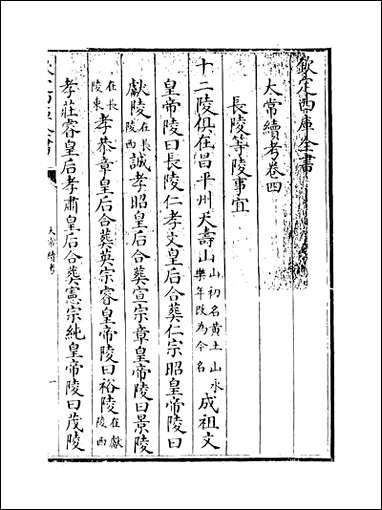 欽定四庫全書
太常續考卷四
長陵等陵事宜
十二陵俱在昌平州天壽山山初名黄土山永樂年改為今名成祖文
皇帝陵曰長陵仁孝文皇后合葬仁宗昭皇帝陵曰
獻陵在長陵西誠孝昭皇后合葬宣宗章皇帝陵曰景陵
在長陵東孝恭章皇后合葬英宗睿皇帝陵曰裕陵在獻陵西
孝莊睿皇后孝肅皇后合葬憲宗純皇帝陵曰茂陵
太常續考
一